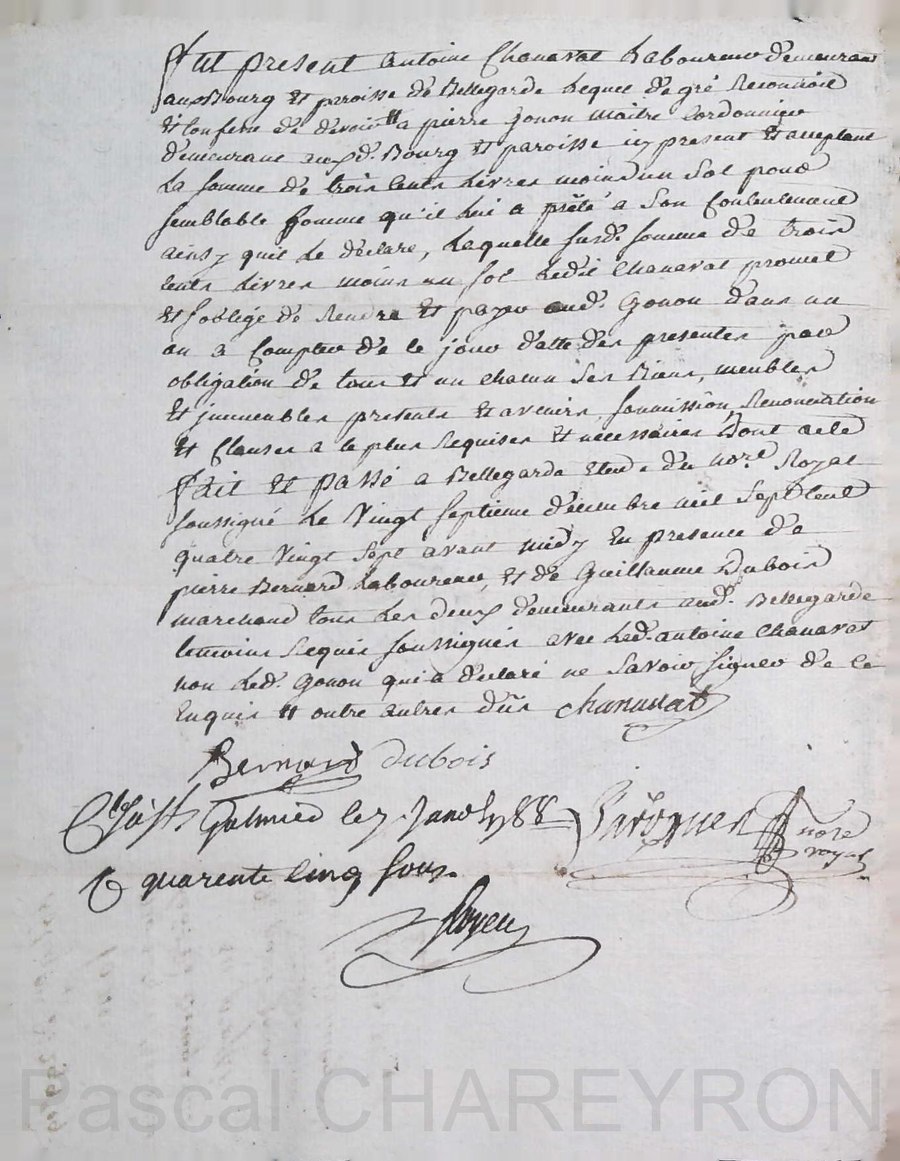 Fut present Antoine Chanavat Laboureur demeurant
aux Bourg et paroisse de Bellegarde Lequel de gré Reconnoit
et Confesse de devoir a pierre Gonon maitre Cordonnier
demeurant auxd. Bourg et paroisse icy present et acceptant
La somme de trois cents Livres moins un Sol pour
semblable somme qu'il Lui a prêté a Son Contentement
ainsy quil Le déclare, Laquelle susd. somme de trois
cents Livres moins un sol Ledit Chanavat promet
et soblige de Rendre et payer aud. Gonon dans un
an a Compter de ce jour datte des presentes par
obligation de tous et un chacun Ses Biens, meubles
et immeubles presents et avenir, soumission, Renonciation
et Clauses a ce plus Requises et necessaires Dont acte
Fait et passé a Bellegarde Etude du nore. Royal
soussigné Le Vingt Septieme décembre mil Sept Cent
quatre Vingt Sept avant midy En presence de
pierre Bernard Laboureur, et de Guillaume Dubois
marchand tous Les deux demeurants aud. Bellegarde
temoins Requis soussignés avec Led. antoine Chanavat
non Led. Gonon qui a déclaré ne Savoir signer de ce
Enquis outre autres dûs Chanavat
Bernard dubois
Galmier le 7 Janv. 1788
nore
royal
quarente cinq sous.